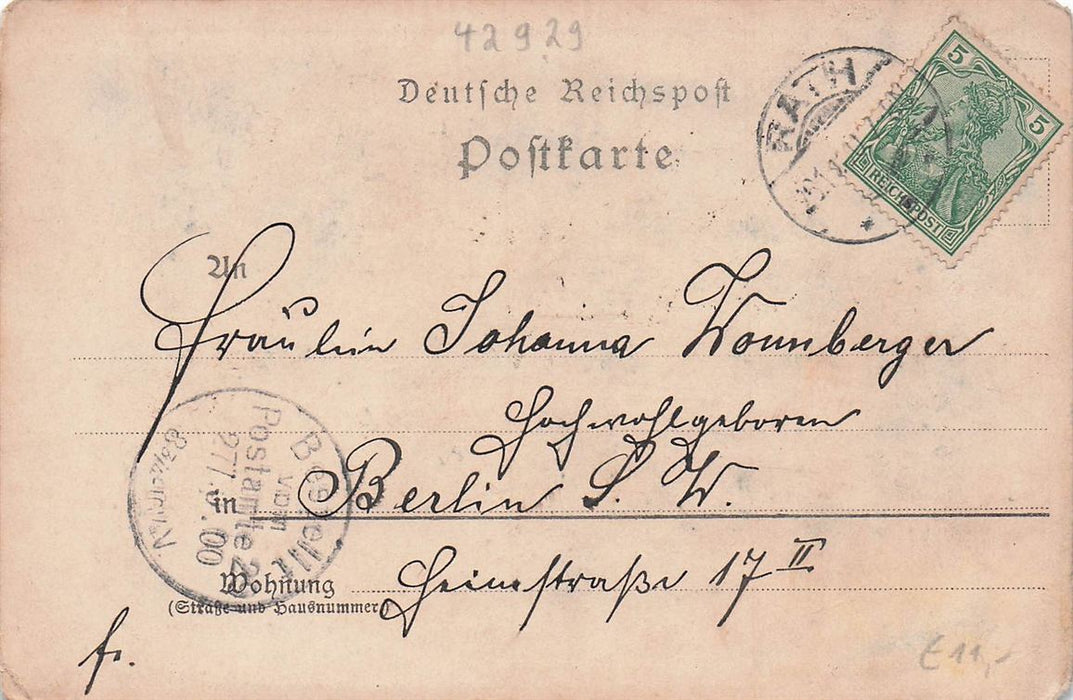 42929
Deutsche Reichspost
Postkarte
5
5
REICHSPOST
RATH
An
Fräulein Johanna Wonnberger
Hochwohlgeboren
in Berlin S. W.
Bestellt
vom
Postamte
27.7.00
Wohnung
(Straße und Hausnummer)
Heimstraße 17 II
fr.
€ 11,-